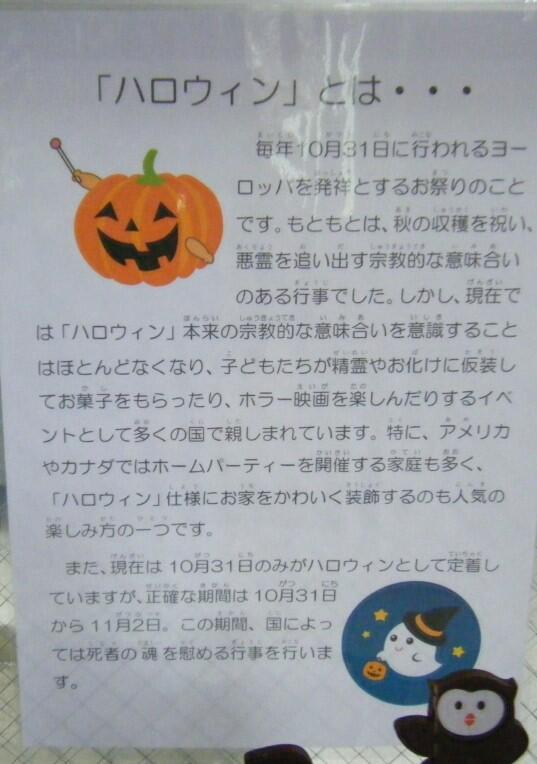 「ハロウィン」とは・・・
毎年10月31日に行われるヨー
ロッパを発祥とするお祭りのこと
です。もともとは、秋の収穫を祝い、
悪霊を追い出す宗教的な意味合い
のある行事でした。しかし、現在で
は「ハロウィン」本来の宗教的な意味合いを意識すること
はほとんどなくなり、子どもたちが精霊やお化けに仮装し
てお菓子をもらったり、ホラー映画を楽しんだりするイベ
ントとして多くの国で親しまれています。特に、アメリカ
やカナダではホームパーティーを開催する家庭も多く、
「ハロウィン」仕様にお家をかわいく装飾するのも人気の
楽しみ方の一つです。
また、現在は10月31日のみがハロウィンとして定着し
ていますが、正確な期間は10月31日
から11月2日。この期間、国によっ
ては死者の魂を慰める行事を行いま
す。